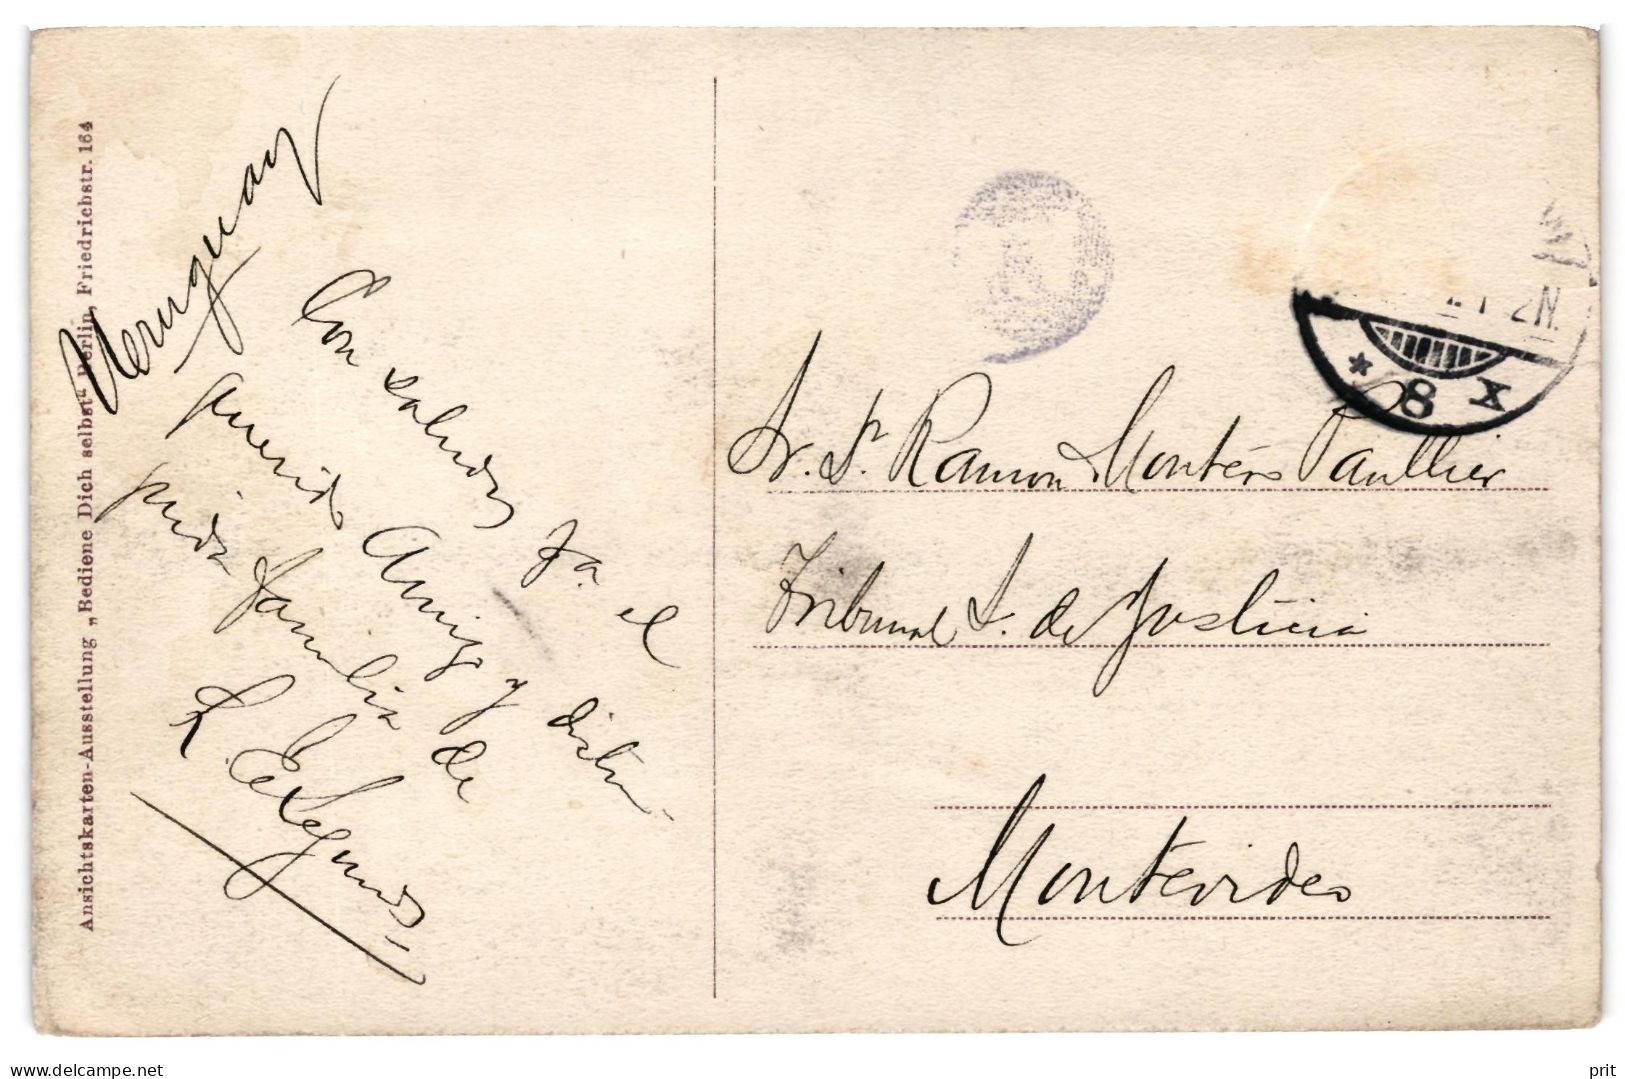 Ansichtskarten-Ausstellung „Bediene Dich selbst“ Berlin, Friedrichstr. 164
Uruguay
Con saludos pa. el
querido Amigo y distin-
guida familia de
R.
Sr. Dr. Ramon Montero Paullier
Tribunal S. de Justicia
Montevideo
2N.
* 8 X
delcampe.net
prit